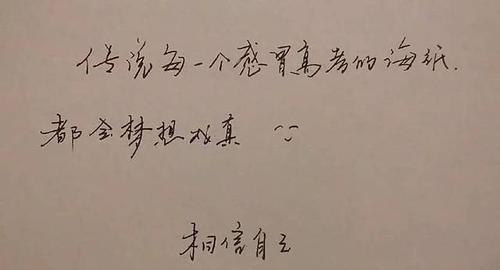 传说每一个感冒高考的海纸.
都会梦想成真
相信自己